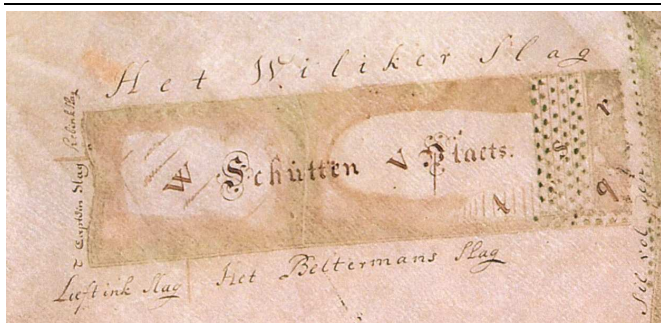 Het Wiliker Slag
W Schutten V Plaets.
S
r
q
t
Captein Slag
Lieftink Slag
Het Beltermans Slag